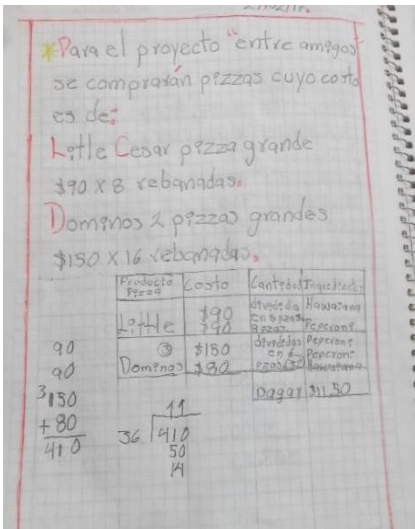 *Para el proyecto "entre amigos"
se comprarán pizzas cuyo costo
es de:
Little Cesar pizza grande
$90 x 8 rebanadas.
Dominos 2 pizzas grandes
$150 x 16 rebanadas.
Producto Pizza Costo Cantidad Ingredient
Little $90 $90 dividida en 8 pzas 8 pzas. Hawaiana Peperoni
Dominos ③ $150 $80 divididas en pzas Peperoni Peperoni Hawaiana
pagar $11.50
90
90
3
150
+80
410
11
36 410
50
14